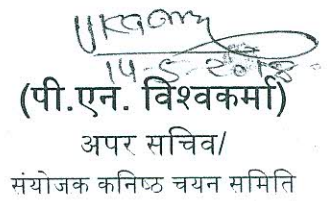 14-5-2018
(पी.एन. विश्वकर्मा)
अपर सचिव/
संयोजक कनिष्ठ चयन समिति